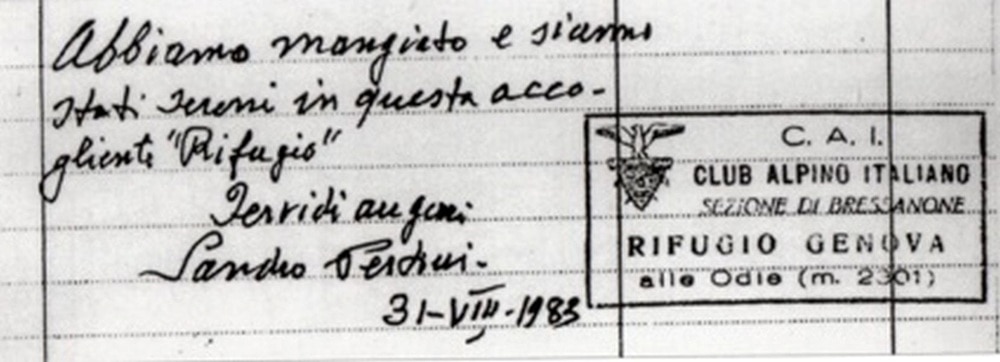 Abbiamo mangiato e siamo
stati sereni in questa acco-
gliente "Rifugio"
Fervidi auguri
Sandro Pertini.
31-VIII-1983
C. A. I.
CLUB ALPINO ITALIANO
SEZIONE DI BRESSANONE
RIFUGIO GENOVA
alle Odle (m. 2301)